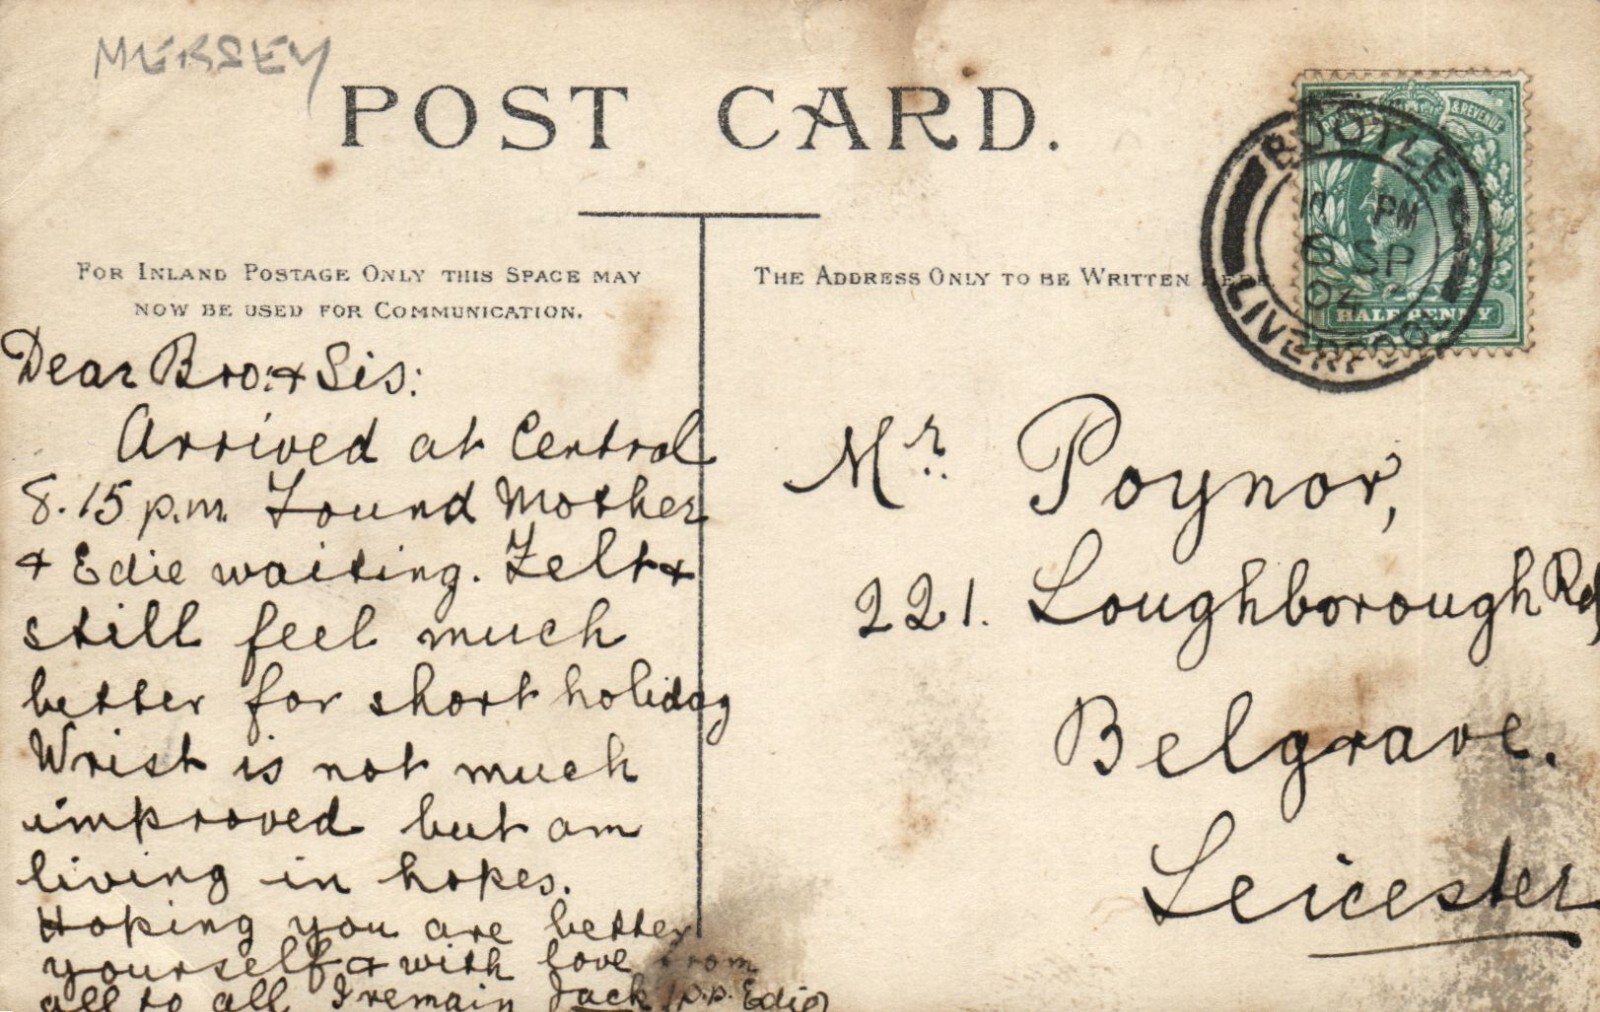 MERSEY
POST CARD.
FOR INLAND POSTAGE ONLY THIS SPACE MAY
NOW BE USED FOR COMMUNICATION.
Dear Bro: & Sis:
Arrived at Central
8.15 p.m. Found Mother
& Edie waiting. Felt &
still feel much
better for short holiday
Wrist is not much
improved but am
living in hopes.
Hoping you are better
yourself & with love from
all to all I remain Jack (p.p. Edie)
THE ADDRESS ONLY TO BE WRITTEN HERE.
POSTAGE & REVENUE
HALFPENNY
BOOTLE
PM
SP
04
LIVERPOOL
Mr. Poynor,
221. Loughborough Rd,
Belgrave.
Leicester